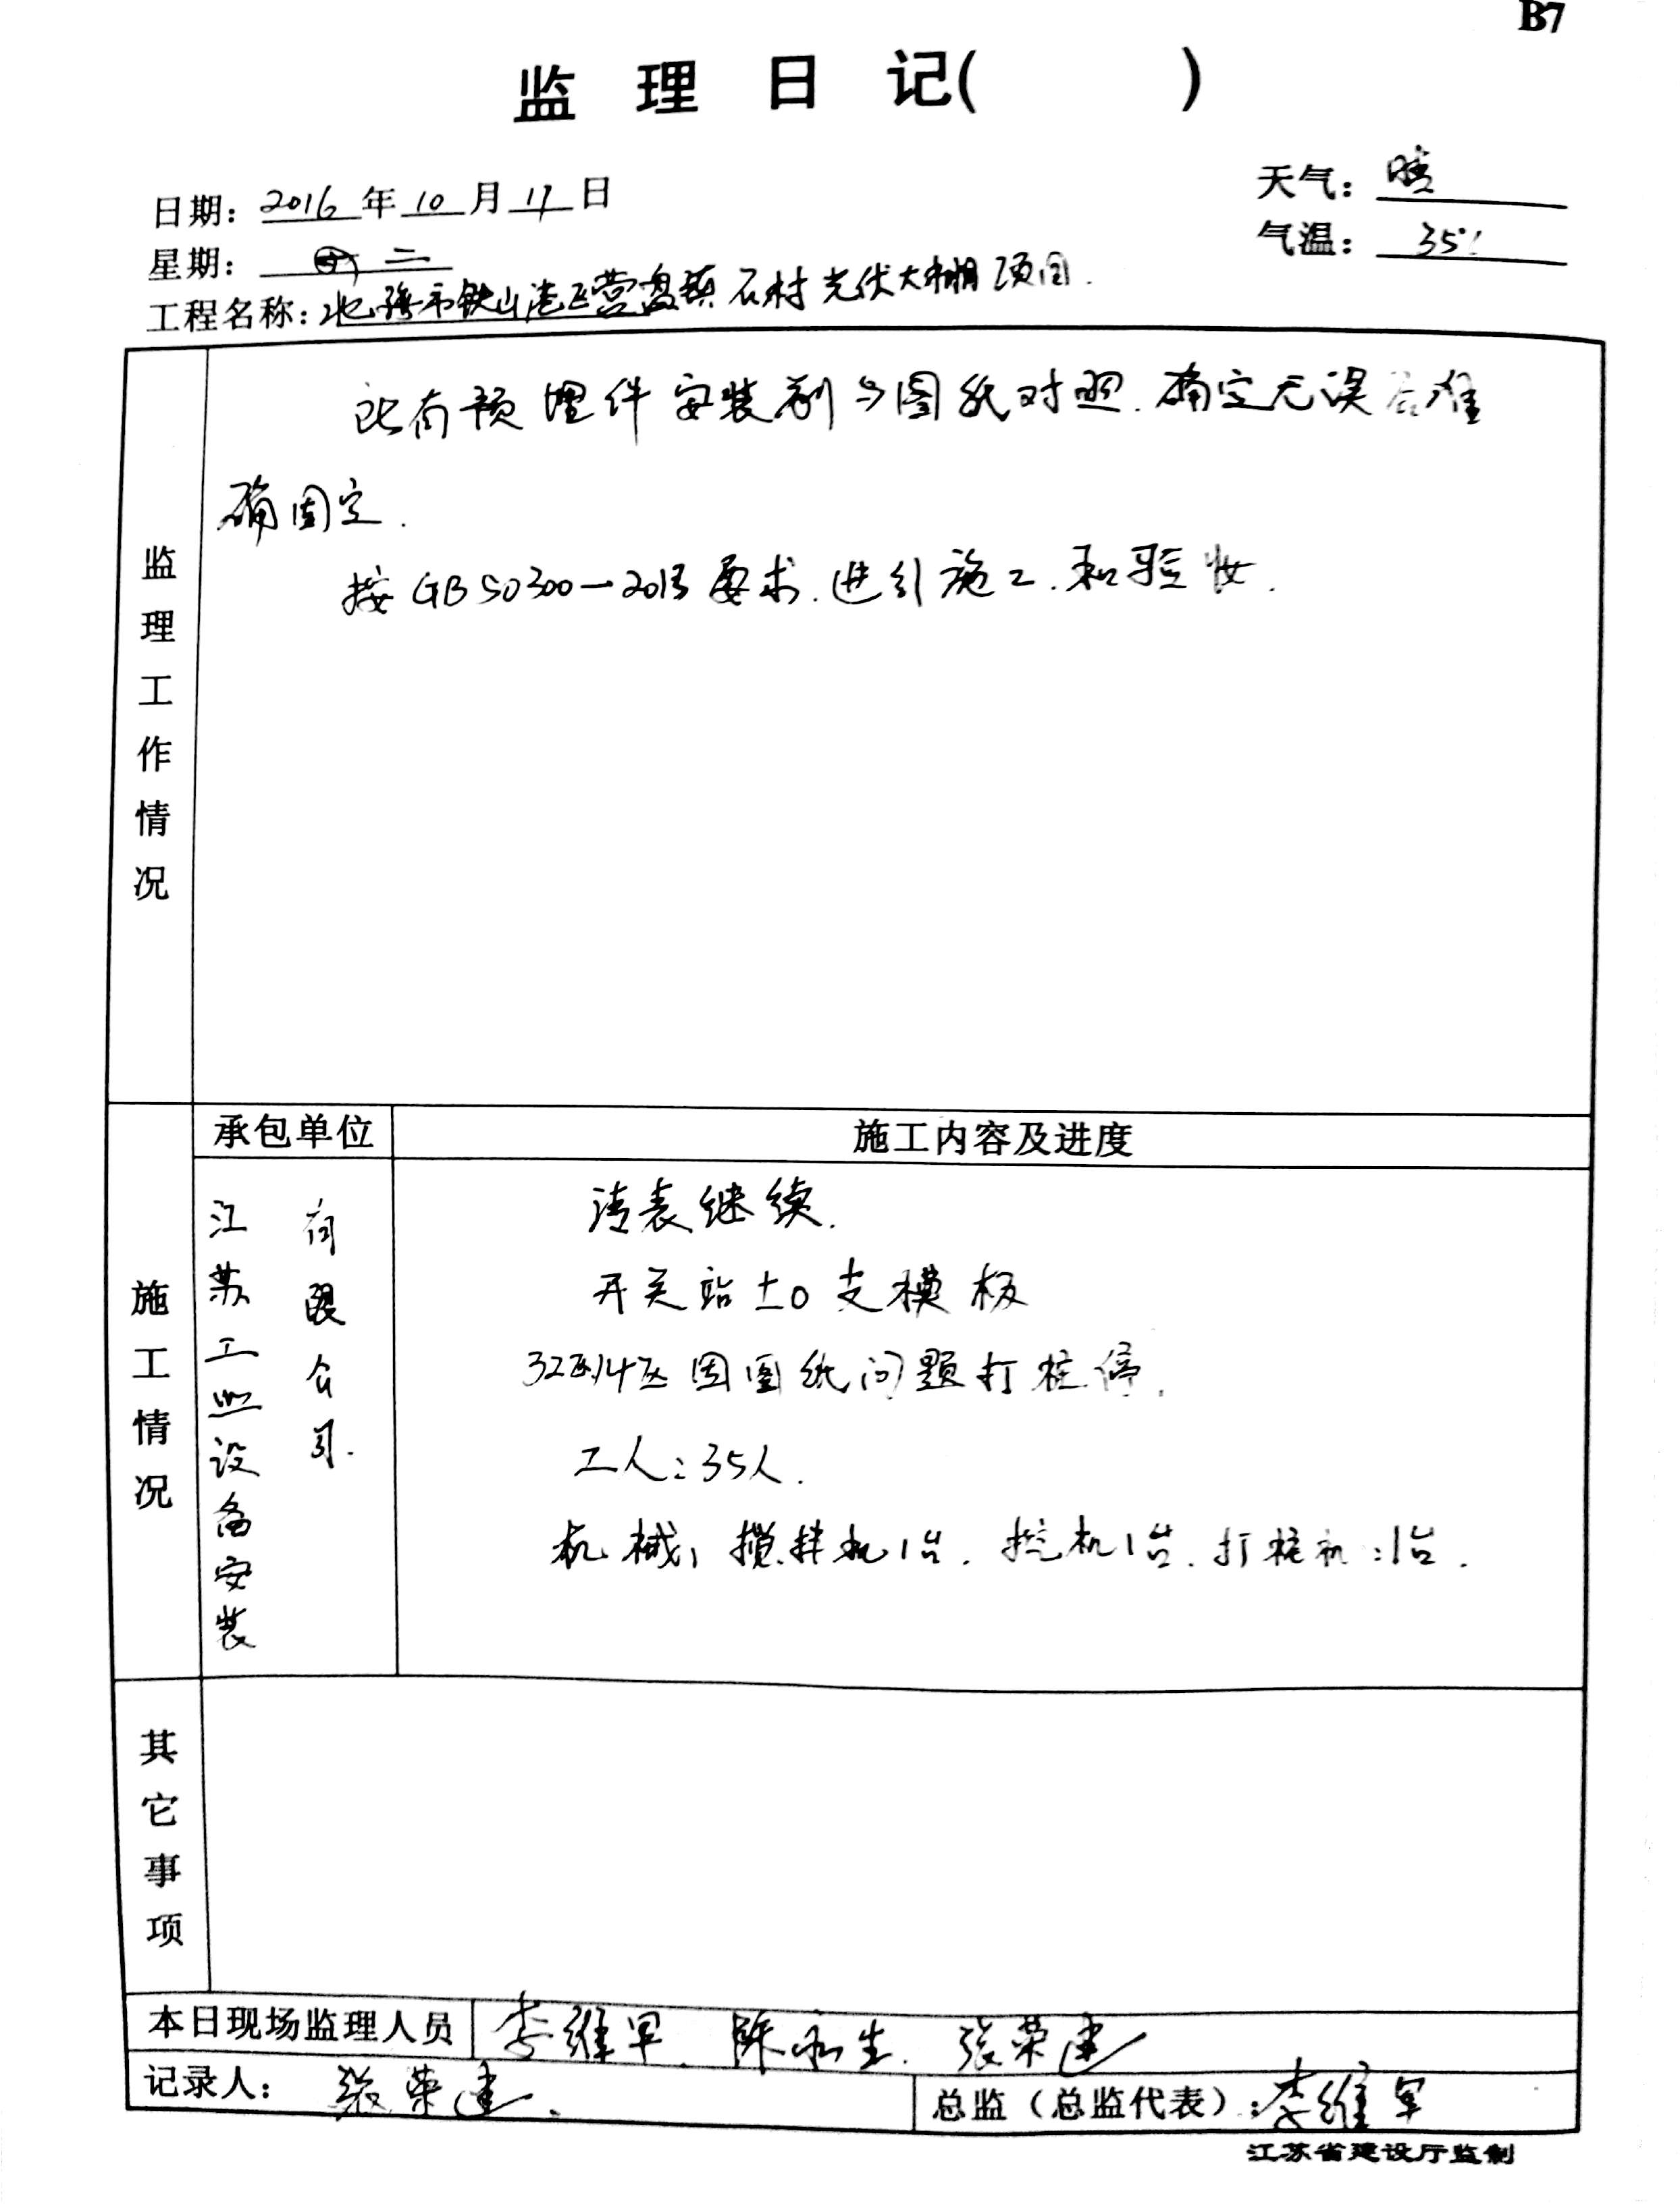 B7
监理日记( )
日期：2016年10月17日
天气：晴
星期：二
气温：35℃
工程名称：北海市铁山港区营盘镇石村光伏大棚项目.
监理工作情况
所有预埋件安装前与图纸对照.确定无误后准
确固定.
按GB50300-2013要求.进行施工.和验收.
承包单位
施工内容及进度
施工情况
江苏工业设备安装
有限公司.
清表继续.
开关站±0支模板
32区14区因图纸问题打桩停.
工人：35人.
机械：搅拌机1台.挖机1台.打桩机：1台.
其它事项
本日现场监理人员 李维军.陈永生.张荣建
记录人：张荣建.
总监（总监代表）：李维军
江苏省建设厅监制